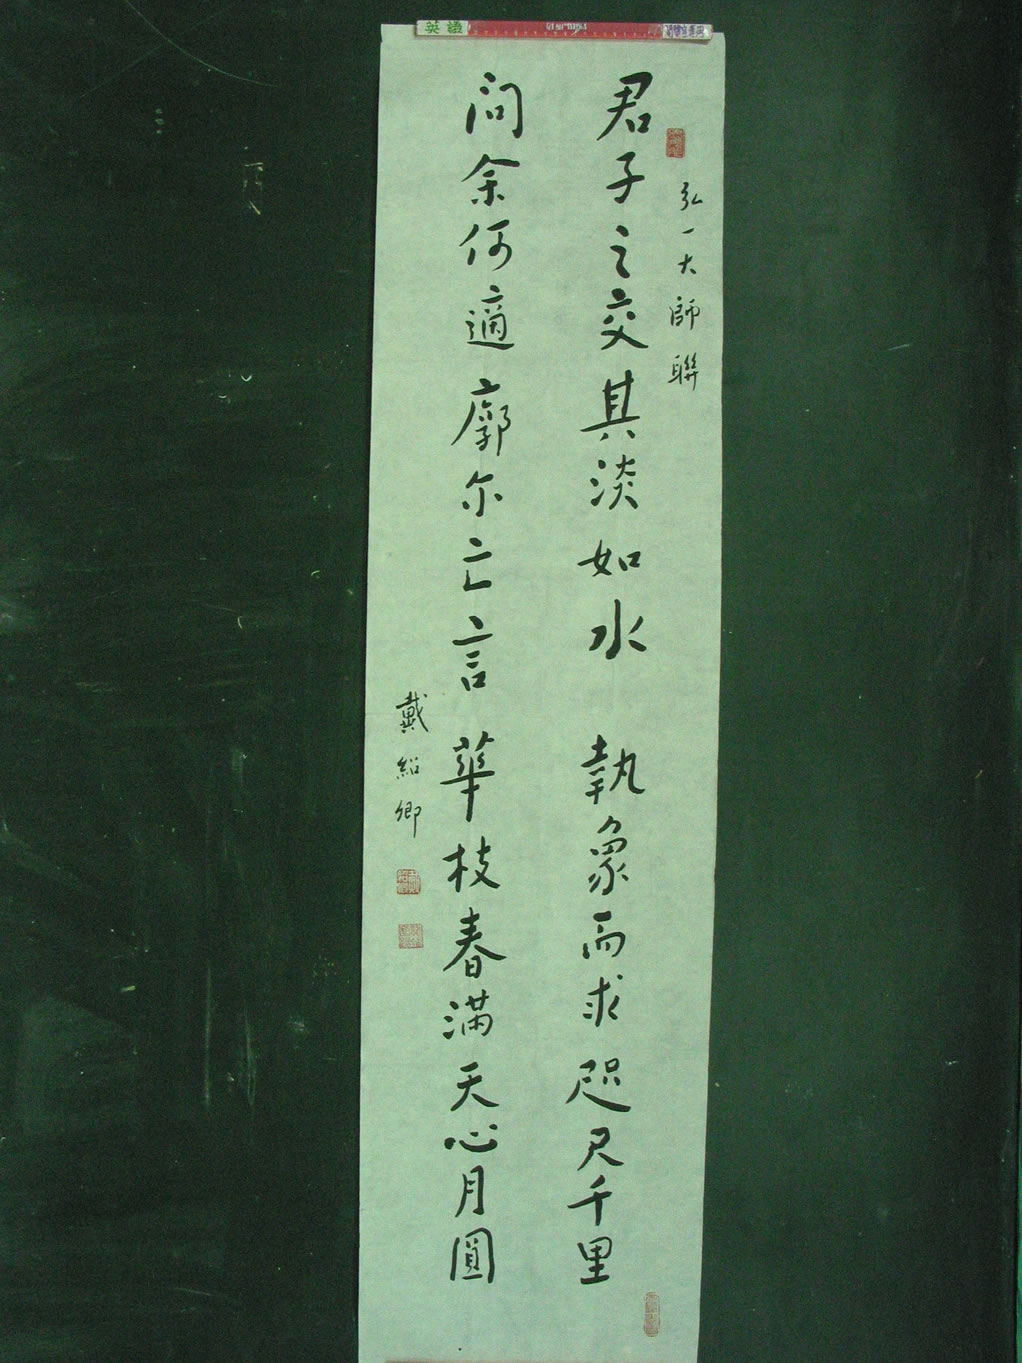 英語
弘一大師聯
君子之交其淡如水 執象而求咫尺千里
问余何適廓尔亡言 華枝春滿天心月圓
戴紹卿